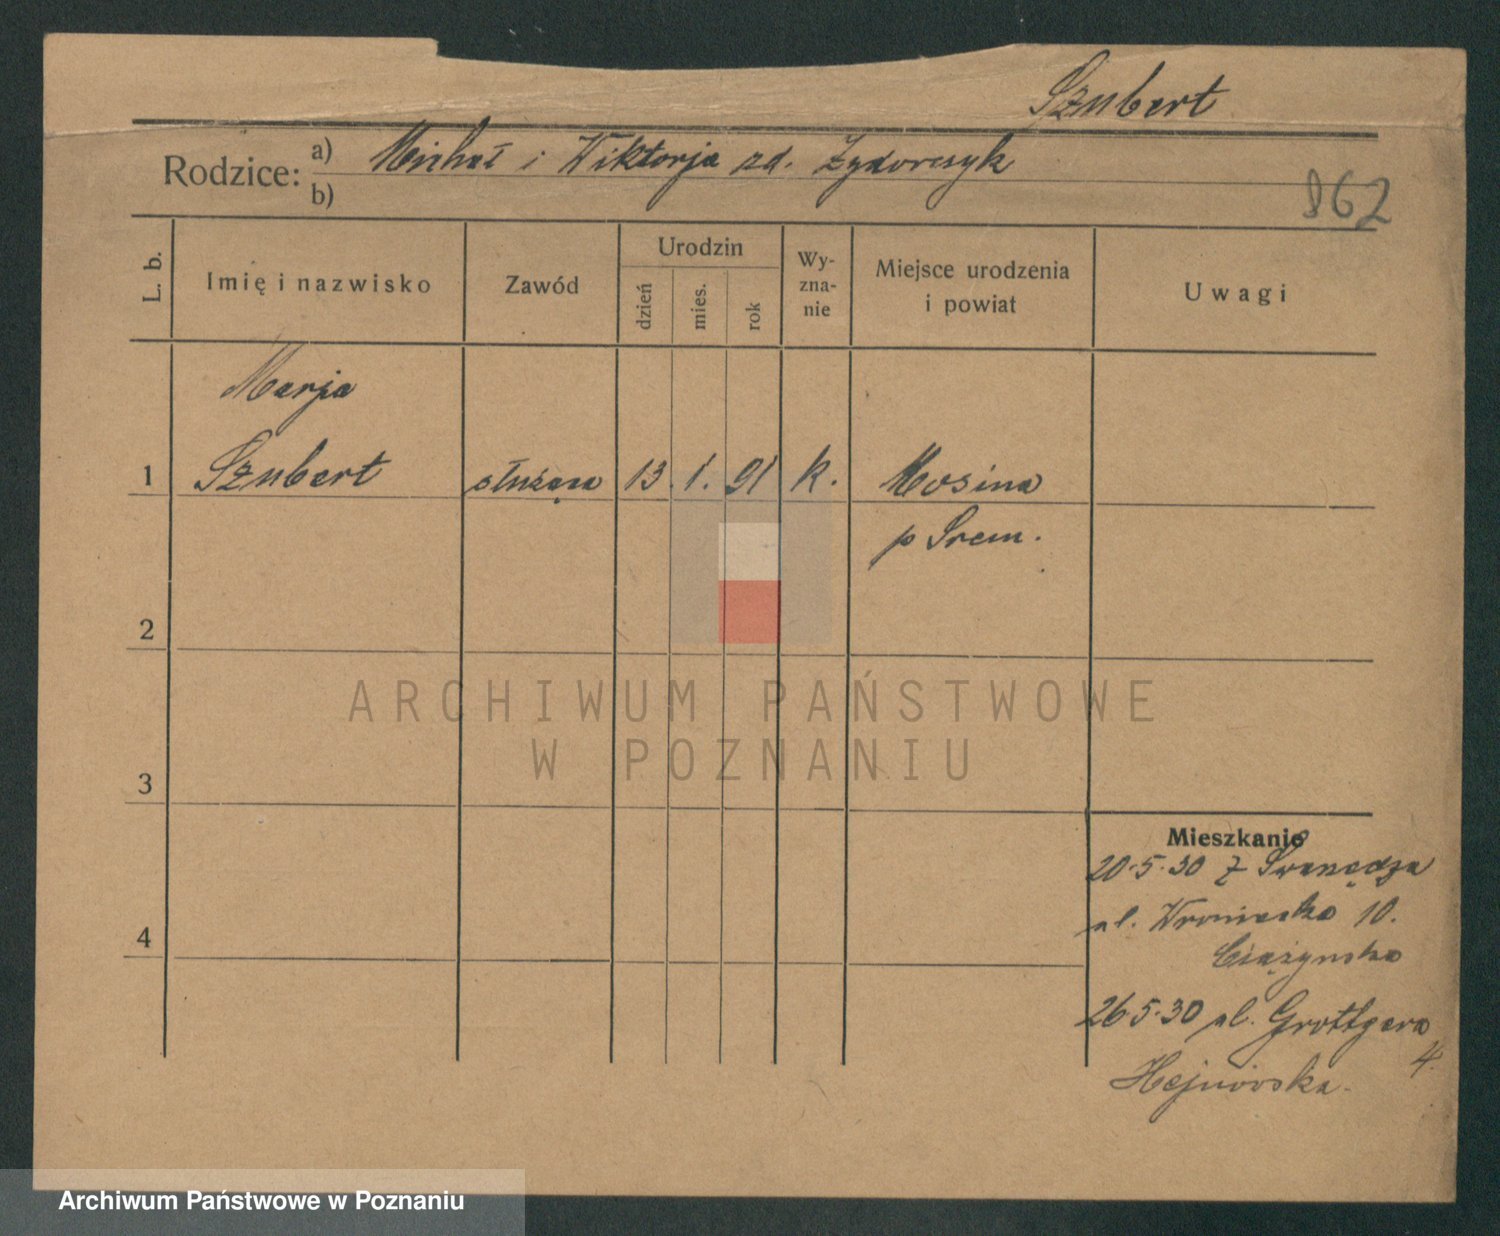 Szubert
Rodzice: a) Michał i Wiktorja zd. Zydorczyk
b)
862
L. b.
Imię i nazwisko
Zawód
Urodzin
dzień
mies.
rok
Wy-
zna-
nie
Miejsce urodzenia
i powiat
Uwagi
Marja
1 Szubert służąca 13 1. 91 k. Mosina
p Śrem.
2
3
4
Mieszkanie
20.5.30 z Swarzędza
ul. Wroniecka 10.
26.5.30 ul. Grottgera
4.
ARCHIWUM PAŃSTWOWE
W POZNANIU
Archiwum Państwowe w Poznaniu